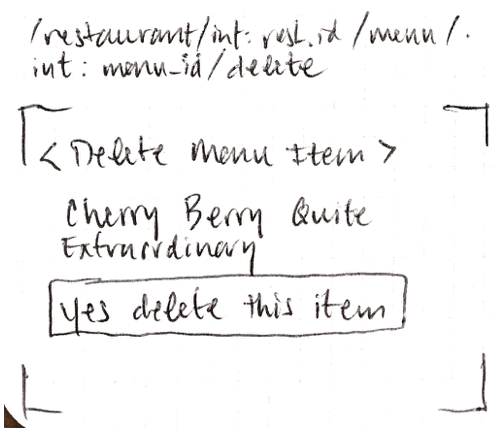 /restaurant/int: rest.id /menu/.
int: menu_id/delete
< Delete Menu Item >
Cherry Berry Quite
Extraordinary
yes delete this item